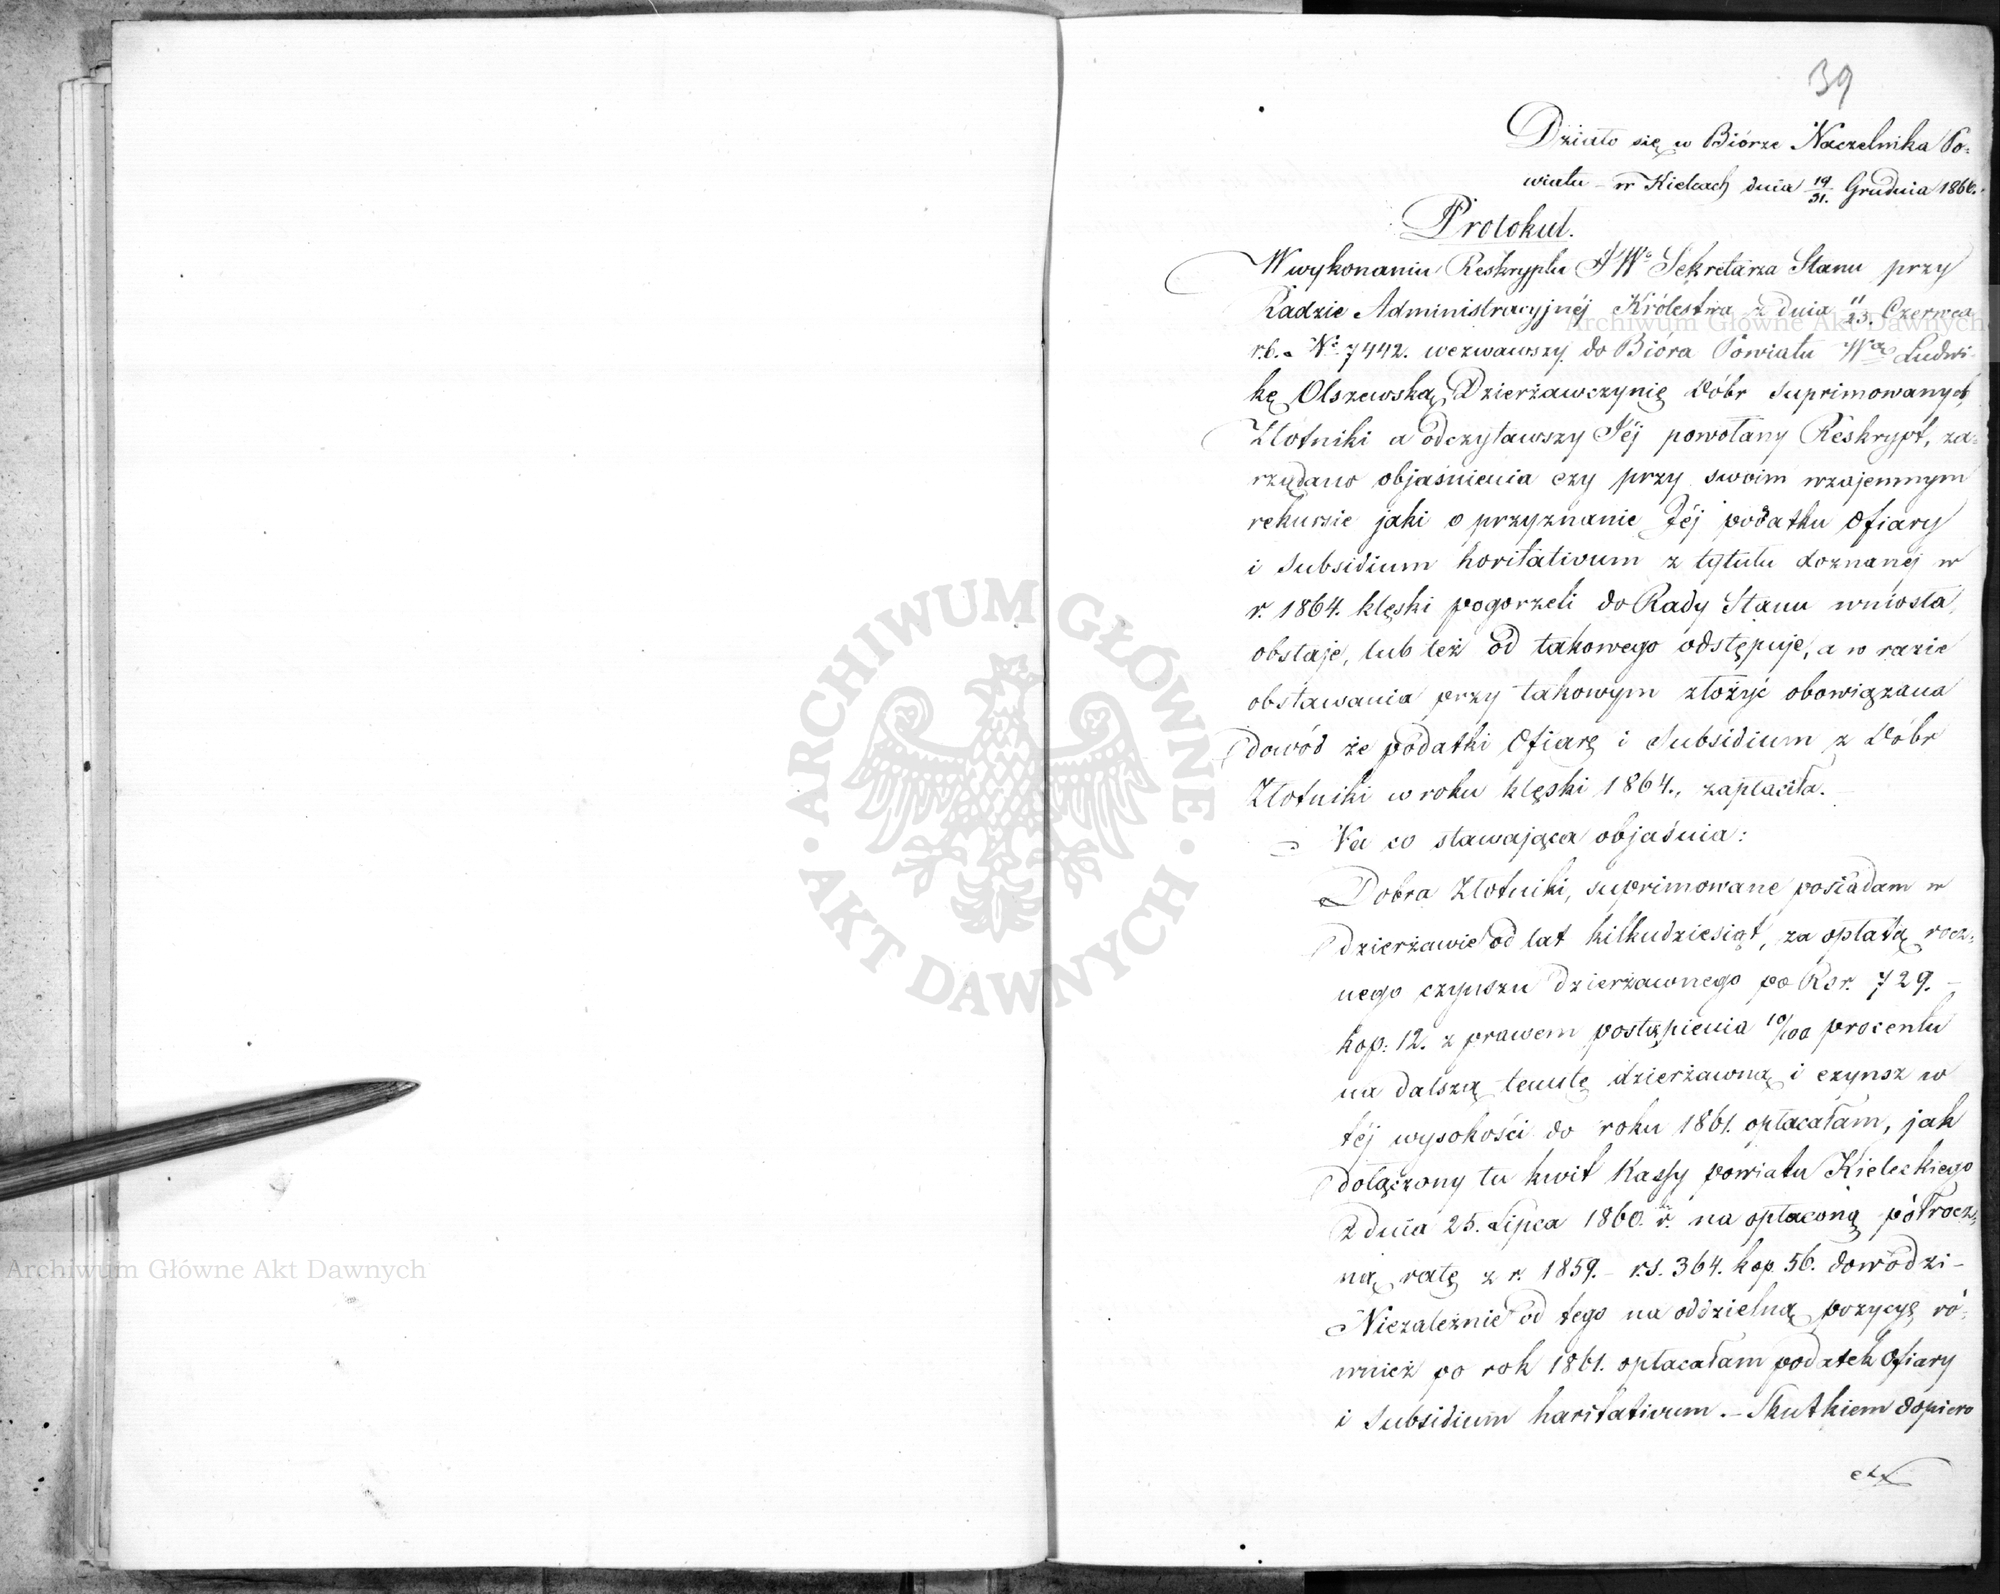 39
Działo się w Biórze Naczelnika Po-
wiatu - w Kielcach dnia 19/31. Grudnia 1866.
Protokuł.
W wykonaniu Reskryptu JWo Sekretarza Stanu przy
Radzie Administracyjnéj Królestwa z dnia 11/23. Czerwca
r.b. No 7442. wezwawszy do Bióra Powiatu Wną Ludwi-
kę Olszewską, Dzierżawczynię Dóbr suprimowanych
Złotniki a odczytawszy Jéj powołany Reskrypt, za-
rządano objaśnienia czy przy swoim wzajemnym
rekursie jaki o przyznanie Jéj podatku Ofiary
i Subsidium horitativum z tytułu doznanéj w
r. 1864. klęski pogorzeli do Rady Stanu wniosła,
obstaje, lub też od takowego odstępuje, a w razie
obstawania przy takowym złożyć obowiązana
dowód że podatki Ofiarę i Subsidium z Dóbr
Złotniki w roku klęski 1864., zapłaciła.
Na co stawająca objaśnia:
Dobra Złotniki, suprimowane posiadam w
dzierżawie od lat kilkudziesiąt, za opłatą rocz-
nego czynszu dzierżawnego po Rsr. 729. -
kop: 12. z prawem postąpienia 10/100 procentu
na dalszą tenutę dzierżawną i czynsz w
téj wysokości do roku 1861. opłacałam, jak
dołączony tu kwit Kassy powiatu Kieleckiego
z dnia 25. Lipca 1860. r. na opłaconą półrocz-
ną ratę z r. 1859. - rs. 364. kop. 56. dowodzi -
Niezależnie od tego na oddzielną pozycyę ró-
wnież po rok 1861. opłacałam podatek Ofiary
i Subsidium haritativum. - Skutkiem dopiero
Archiwum Główne Akt Dawnych
Archiwum Główne Akt Dawnych
ARCHIWUM GŁÓWNE · AKT DAWNYCH ·